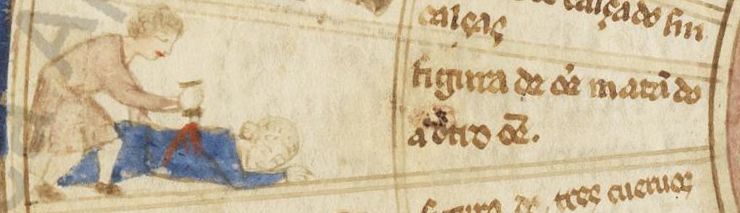 calçado sin
calças
figura de oẽ matãdo
a otro oẽ.
figura de tres cueruos